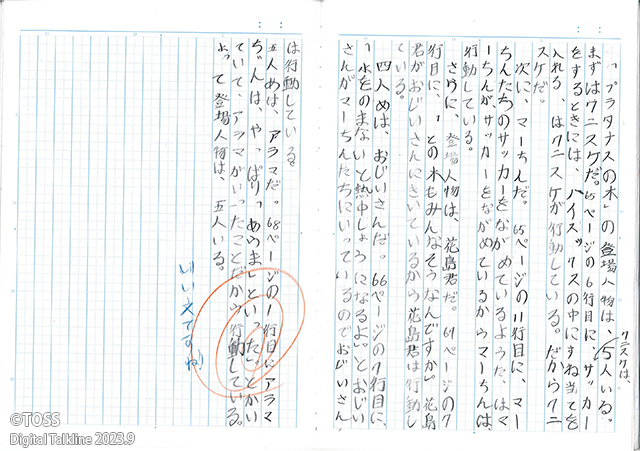 「プラタナスの木」の登場人物は、5人いる。
クニスケは、
まずはクニスケだ。65ページの6行目に、サッカー
をするときには、ハイソックスの中にすね当てを
入れる、はクニスケが行動している。だからクニ
スケだ。
次に、マーちんだ。65ページの11行目に、マー
ちんたちのサッカーをながめているようだ、はマ
ーちんが、サッカーをながめているからマーちんは、
行動している。
さらに、登場人物は、花島君だ。69ページの7
行目に、「どの木もみんなそうなんですか」花島
君がおじいさんにきいているから花島君は行動し
ている。
四人めは、おじいさんだ。66ページの7行目に、
「水をのまないと熱中しょうになるよ」とおじい
さんがマーちんたちにいっているのでおじいさん
は行動している
五人めは、アラマだ。68ページの1行目にアラマ
ちゃんは、やっぱり「あらま」といった。とかい
ていて、アラマがいったことだから行動している。
よって登場人物は、五人いる。
いい文ですね!
©TOSS
Digital Talkline 2023.9